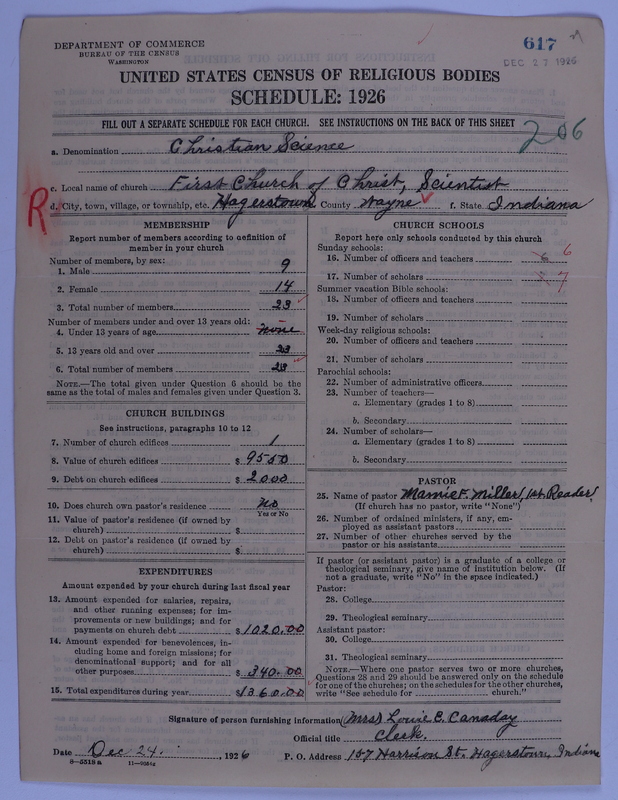 DEPARTMENT OF COMMERCE
BUREAU OF THE CENSUS
WASHINGTON
617
DEC 27 1926
UNITED STATES CENSUS OF RELIGIOUS BODIES
SCHEDULE: 1926
FILL OUT A SEPARATE SCHEDULE FOR EACH CHURCH. SEE INSTRUCTIONS ON THE BACK OF THIS SHEET
206
a. Denomination Christian Science
c. Local name of church First Church of Christ, Scientist
R
d. City, town, village, or township, etc. Hagerstown County Wayne f. State Indiana
MEMBERSHIP
Report number of members according to definition of
member in your church
Number of members, by sex:
1. Male 9
2. Female 14
3. Total number of members 23
Number of members under and over 13 years old:
4. Under 13 years of age none
5. 13 years old and over 23
6. Total number of members 23
NOTE.—The total given under Question 6 should be the
same as the total of males and females given under Question 3.
CHURCH BUILDINGS
See instructions, paragraphs 10 to 12
7. Number of church edifices 1
8. Value of church edifices $ 9550
9. Debt on church edifices $ 2000
10. Does church own pastor's residence no
Yes or No
11. Value of pastor's residence (if owned by
church) $
12. Debt on pastor's residence (if owned by
church) $
EXPENDITURES
Amount expended by your church during last fiscal year
13. Amount expended for salaries, repairs,
and other running expenses; for im-
provements or new buildings; and for
payments on church debt $ 1020.00
14. Amount expended for benevolences, in-
cluding home and foreign missions; for
denominational support; and for all
other purposes $ 340.00
15. Total expenditures during year $ 1360.00
CHURCH SCHOOLS
Report here only schools conducted by this church
Sunday schools:
16. Number of officers and teachers 6 6
17. Number of scholars 7
Summer vacation Bible schools:
18. Number of officers and teachers
19. Number of scholars
Week-day religious schools:
20. Number of officers and teachers
21. Number of scholars
Parochial schools:
22. Number of administrative officers
23. Number of teachers—
a. Elementary (grades 1 to 8)
b. Secondary
24. Number of scholars—
a. Elementary (grades 1 to 8)
b. Secondary
PASTOR
25. Name of pastor Mamie F. Miller, 1st. Reader,
(If church has no pastor, write "None")
26. Number of ordained ministers, if any, em-
ployed as assistant pastors
27. Number of other churches served by the
pastor or his assistants
If pastor (or assistant pastor) is a graduate of a college or
theological seminary, give name of institution below. (If
not a graduate, write "No" in the space indicated.)
Pastor:
28. College
29. Theological seminary
Assistant pastor:
30. College
31. Theological seminary
NOTE.—Where one pastor serves two or more churches,
Questions 28 and 29 should be answered only on the schedule
for one of the churches; on the schedules for the other churches,
write "See schedule for church."
Signature of person furnishing information (Mrs) Louie E. Canaday
Official title Clerk.
Date Dec. 24. , 1926 P. O. Address 157 Harrison St. Hagerstown, Indiana
8—5518 a